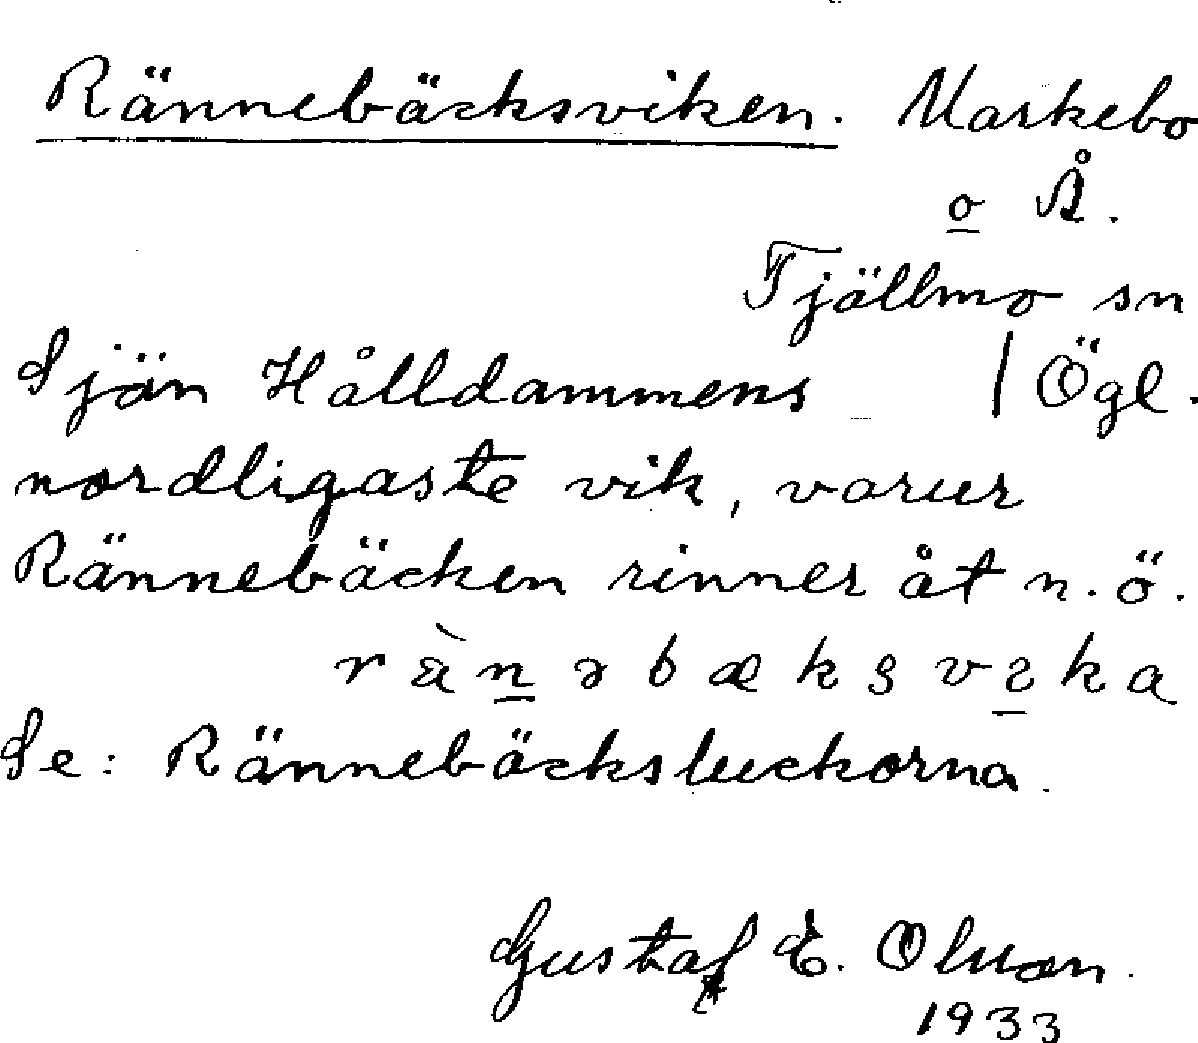 Rännebäcksviken. Markebo
o Å.
Tjällmo sn
Sjön Hålldammens | Ögl.
nordligaste vik, varur
Rännebäcken rinner åt n.ö.
Se: Rännebäcksluckorna.
Gustaf E. Olsson.
1933